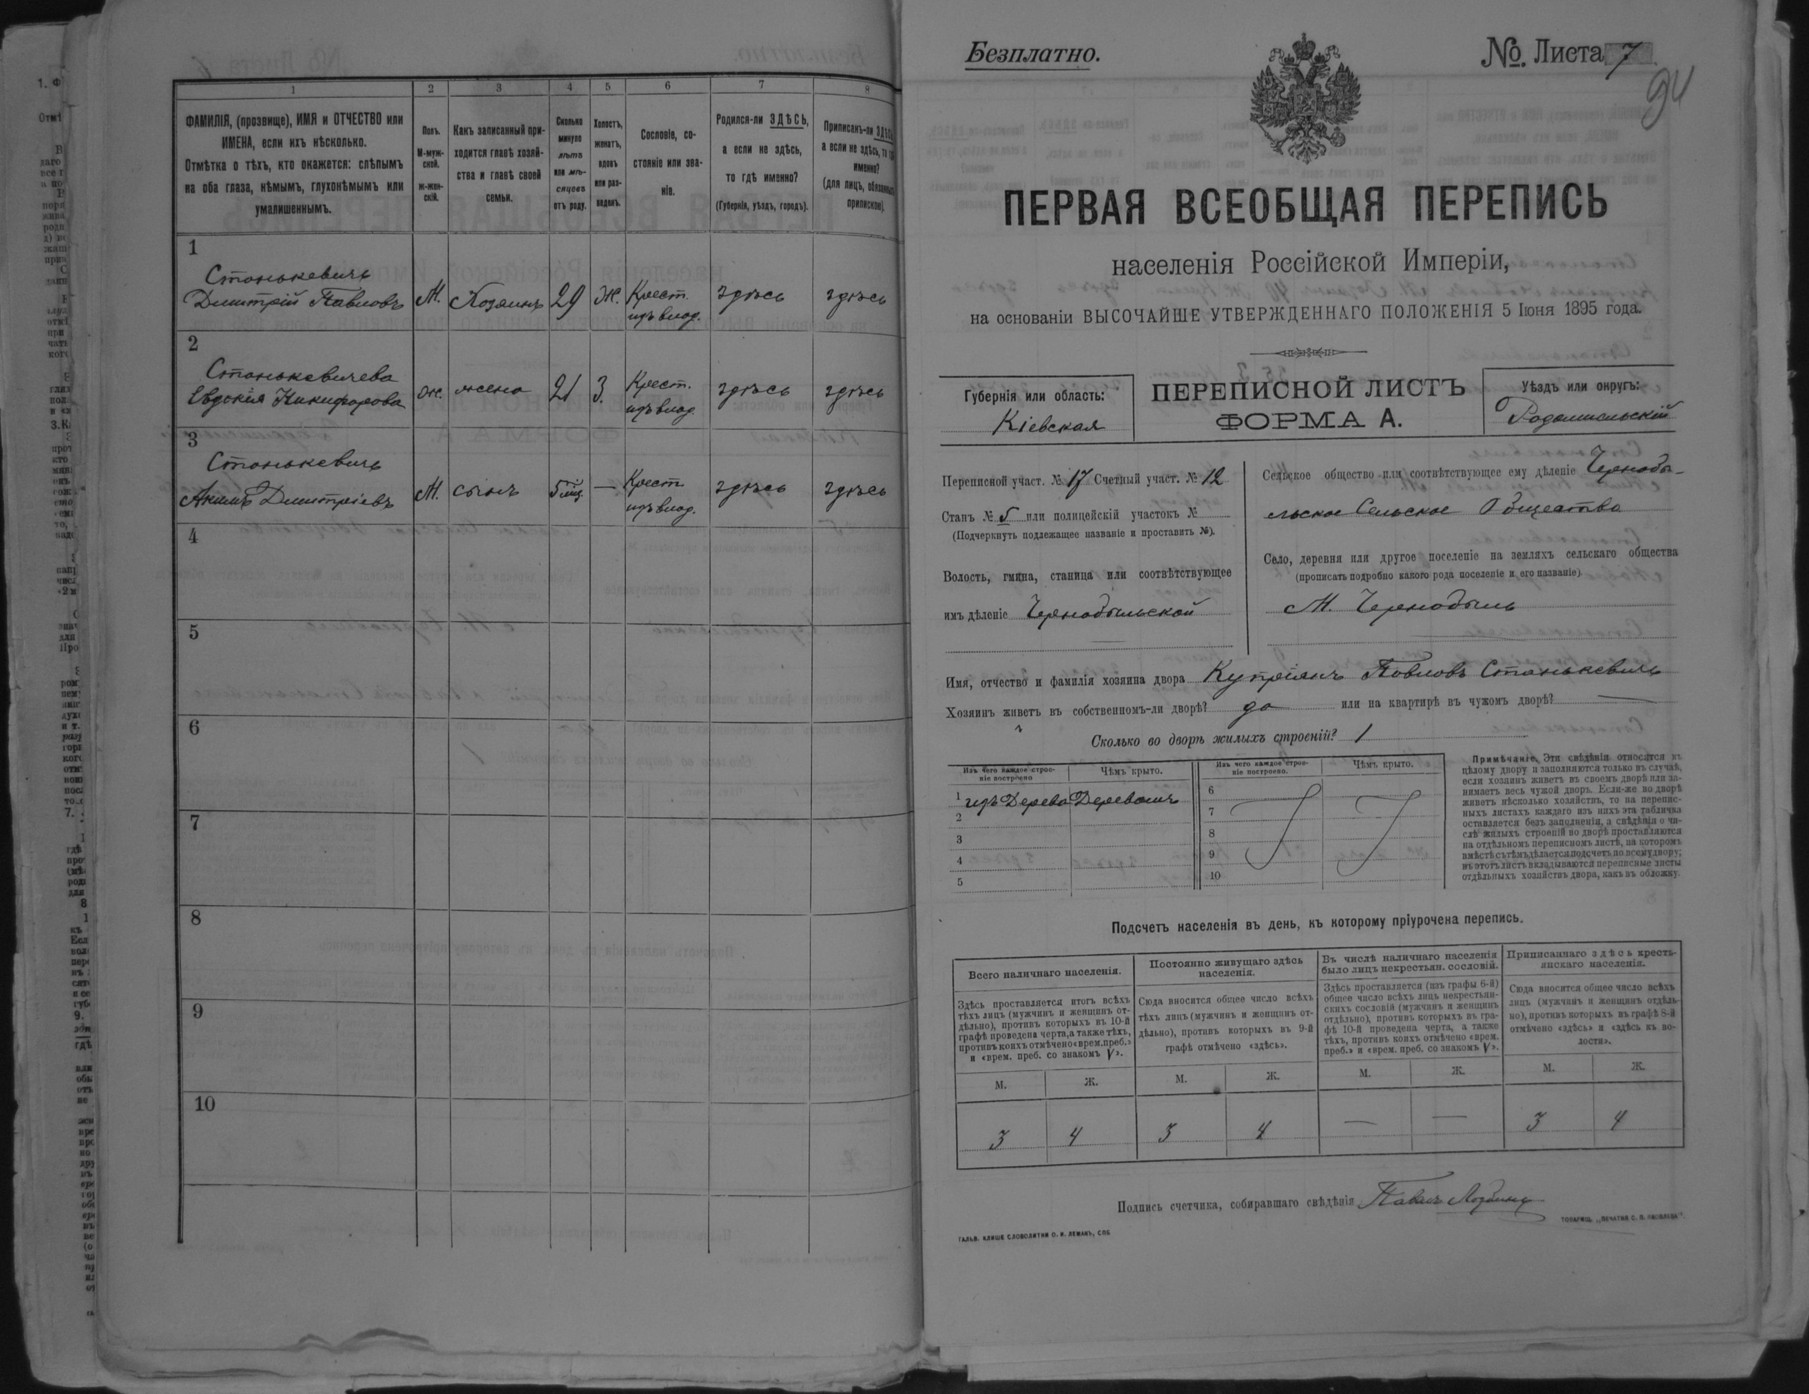 1 2 3 4 5 6 7 8
ФАМИЛІЯ, (прозвище), ИМЯ и ОТЧЕСТВО или
ИМЕНА, если ихъ нѣсколько.
Отмѣтка о тѣхъ, кто окажется: слѣпымъ
на оба глаза, нѣмымъ, глухонѣмымъ или
умалишеннымъ.
Полъ.
М-муж-
ской.
ж-жен-
скій.
Какъ записанный при-
ходится главѣ хозяй-
ства и главѣ своей
семьи.
Сколько
минуло
лѣтъ
или мѣ-
сяцевъ
отъ роду.
Холостъ,
женатъ,
вдовъ
или раз-
веденъ.
Сословіе, со-
стояніе или зва-
ніе.
Родился-ли ЗДѢСЬ,
а если не здѣсь,
то гдѣ именно?
(Губернія, уѣздъ, городъ).
Приписанъ-ли ЗДѢСЬ
а если не здѣсь, то
именно?
(для лицъ,
припискою)
1
Станькевичъ
Дмитрій Павловъ М. Хозяинъ 29 Ж. Крест. изъ влад. здѣсь здѣсь
2
Станькевичева
Евдокія Никифорова ж. жена 21 З. Крест. изъ влад. здѣсь здѣсь
3
Станькевичъ
Акимъ Дмитріевъ М. сынъ 5 мѣс — Крест изъ влад. здѣсь здѣсь
4
5
6
7
8
9
10
Безплатно.
№ Листа 7
94
ПЕРВАЯ ВСЕОБЩАЯ ПЕРЕПИСЬ
населенія Россійской Имперіи,
на основаніи ВЫСОЧАЙШЕ УТВЕРЖДЕННАГО ПОЛОЖЕНІЯ 5 Іюня 1895 года.
Губернія или область:
Кіевская
ПЕРЕПИСНОЙ ЛИСТЪ
ФОРМА А.
Уѣздъ или округъ:
Радомысльскій
Переписной участ. № 17 Счетный участ. № 12
Станъ № 5 или полицейскій участокъ №
(Подчеркнуть подлежащее названіе и проставить №).
Волость, гмина, станица или соотвѣтствующее
имъ дѣленіе Чернобыльской
Сельское общество или соотвѣтствующее ему дѣленіе Чернобы-
льское Сельское Общество
Село, деревня или другое поселеніе на земляхъ сельскаго общества
(прописать подробно какого рода поселеніе и его названіе)
М. Чернобыль
Имя, отчество и фамилія хозяина двора Купріянъ Павловъ Станькевичъ
Хозяинъ живетъ въ собственномъ-ли дворѣ? да или на квартирѣ въ чужомъ дворѣ? —
Сколько во дворѣ жилыхъ строеній? 1
Изъ чего каждое строе-
ніе построено
Чѣмъ крыто.
Изъ чего каждое строе-
ніе построено.
Чѣмъ крыто.
1 изъ Дерева Деревомъ
2
3
4
5
6
7
8
9
10
Примѣчаніе. Эти свѣдѣнія относятся къ
цѣлому двору и заполняются только въ случаѣ,
если хозяинъ живетъ въ своемъ дворѣ или за-
нимаетъ весь чужой дворъ. Если-же во дворѣ
живетъ нѣсколько хозяйствъ, то на перепис-
ныхъ листахъ каждаго изъ нихъ эта табличка
оставляется безъ заполненія, а свѣдѣнія о чи-
слѣ жилыхъ строеній во дворѣ проставляются
на отдѣльномъ переписномъ листѣ, на которомъ
вмѣстѣ съ тѣмъ дѣлается подсчетъ по всему двору;
въ этотъ листъ вкладываются переписные листы
отдѣльныхъ хозяйствъ двора, какъ въ обложку.
Подсчетъ населенія въ день, къ которому пріурочена перепись.
Всего наличнаго населенія.
Здѣсь проставляется итогъ всѣхъ
тѣхъ лицъ (мужчинъ и женщинъ от-
дѣльно), противъ которыхъ въ 10-й
графѣ проведена черта, а также тѣхъ,
противъ коихъ отмѣчено «врем. преб.»
и «врем. преб. со знакомъ V».
Постоянно живущаго здѣсь
населенія.
Сюда вносится общее число всѣхъ
тѣхъ лицъ (мужчинъ и женщинъ от-
дѣльно), противъ которыхъ въ 9-й
графѣ отмѣчено «здѣсь».
Въ числѣ наличнаго населенія
было лицъ некрестьян. сословій.
Здѣсь проставляется (изъ графы 6-й)
общее число всѣхъ лицъ некрестьян-
скихъ сословій (мужчинъ и женщинъ
отдѣльно), противъ которыхъ въ гра-
фѣ 10-й проведена черта, а также
тѣхъ, противъ коихъ отмѣчено «врем.
преб.» и «врем. преб. со знакомъ V».
Приписаннаго здѣсь кресть-
янскаго населенія.
Сюда вносится общее число всѣхъ
лицъ (мужчинъ и женщинъ отдѣль-
но), противъ которыхъ въ графѣ 8-й
отмѣчено «здѣсь» и «здѣсь къ во-
лости».
М. Ж. М. Ж. М. Ж. М. Ж.
3 4 3 4 — — 3 4
Подпись счетчика, собиравшаго свѣдѣнія Павелъ
ГАЛЬВ. КЛИШЕ СЛОВОЛИТНИ О. И. ЛЕМАНЪ, СПБ
ТОВАРИЩ. „ПЕЧАТНЯ С. П. ЯКОВЛЕВА"